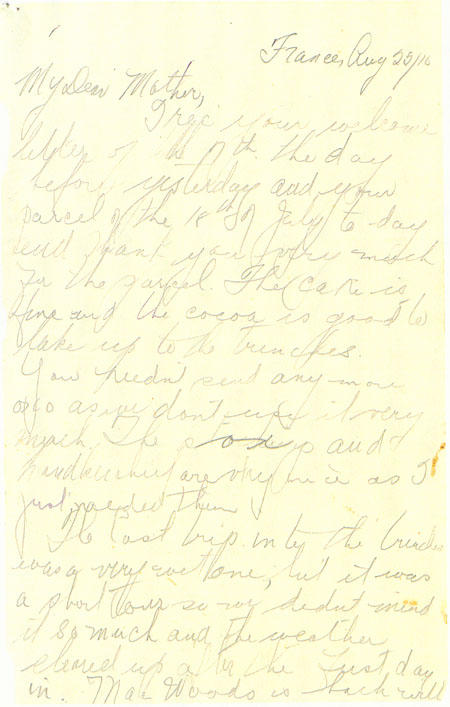 France, Aug 25/16
My Dear Mother,
I rec your welcome
letter of the 7th. the day
before yesterday and your
parcel of the 18th of July to day
and thank you very much
for the parcel. The cake is
fine and the cocoa is good to
take up to the trenches.
You needn't send any more
oxo as we don't use it very
much. The soap and
handkerchief are very nice as I
just needed them
The last trip into the trenches
was a very wet one, but it was
a short tour so we didn't mind
it so much and the weather
cleared up after the first day
in. Mac Woods is back with